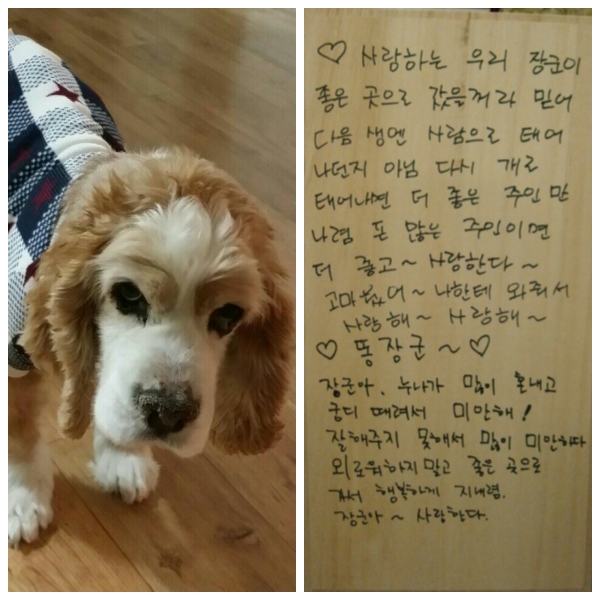 ♡ 사랑하는 우리 장군이
좋은 곳으로 갔을꺼라 믿어
다음 생엔 사람으로 태어
나던지 아님 다시 개로
태어나면 더 좋은 주인 만
나렴 돈 많은 주인이면
더 좋고~ 사랑한다~
고마웠어~ 나한테 와줘서
사랑해~ 사랑해~
♡ 똥장군~♡
장군아. 누나가 많이 혼내고
궁디 때려서 미안해!
잘해주지 못해서 많이 미안하다
외로워하지말고 좋은 곳으로
가서 행복하게 지내렴.
장군아~ 사랑한다.